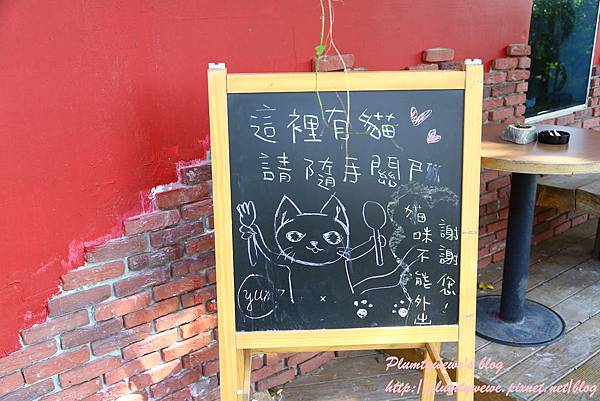 這裡有貓
請隨手關門
貓咪不能外出
謝謝您!
yum
Plumtywewe's blog
http://plumtywewe.pixnet.net/blog